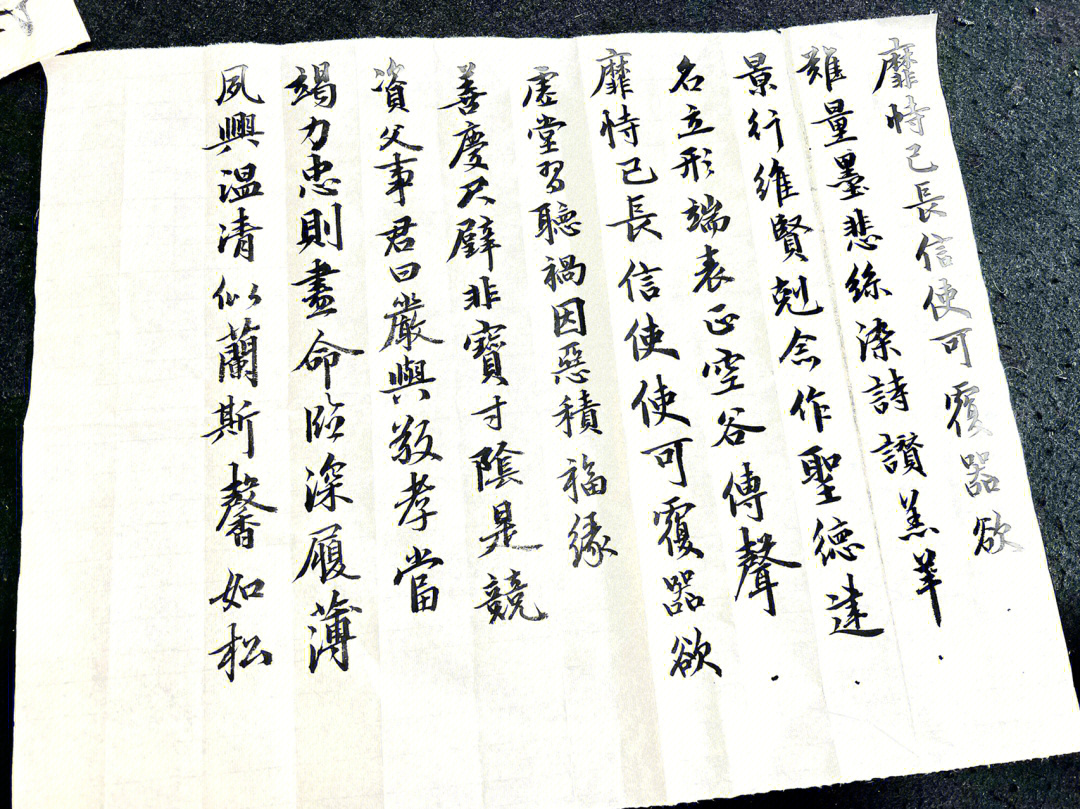 靡恃己長信使可覆器欲
難量墨悲絲染詩讚羔羊
景行維賢剋念作聖德建
名立形端表正空谷傳聲
靡恃己長信使使可覆器欲
虛堂習聽禍因惡積福緣
善慶尺璧非寶寸陰是競
資父事君曰嚴與敬孝當
竭力忠則盡命臨深履薄
夙興温凊似蘭斯馨如松